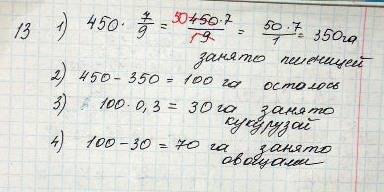 13 1) 450 · 7/9 = 50 450·7/9 = 50·7/1 = 350 га
занято пшеницей
2) 450 - 350 = 100 га осталось
3) 100 · 0,3 = 30 га занято
кукурузай
4) 100 - 30 = 70 га занято
овощами